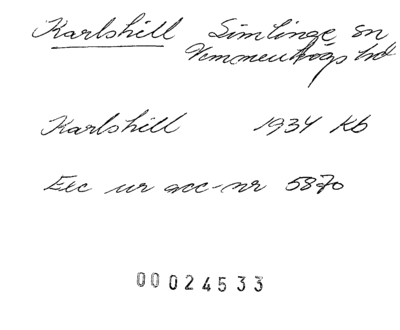 Karlshill Simlinge sn
Vemmenhögs hd
Karlshill 1934 Kb
Exc ur acc-nr 5870
00024533